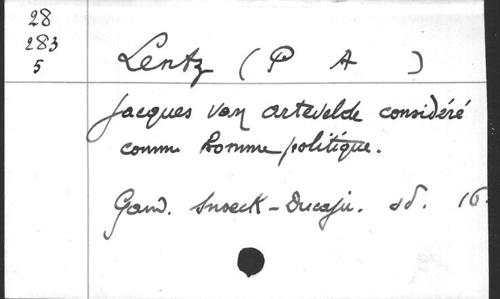 28
283
5
Lentz (P A )
Jacques van Artevelde considéré
comme homme politique.
Gand. Snoeck-Ducaju. sd. 16.